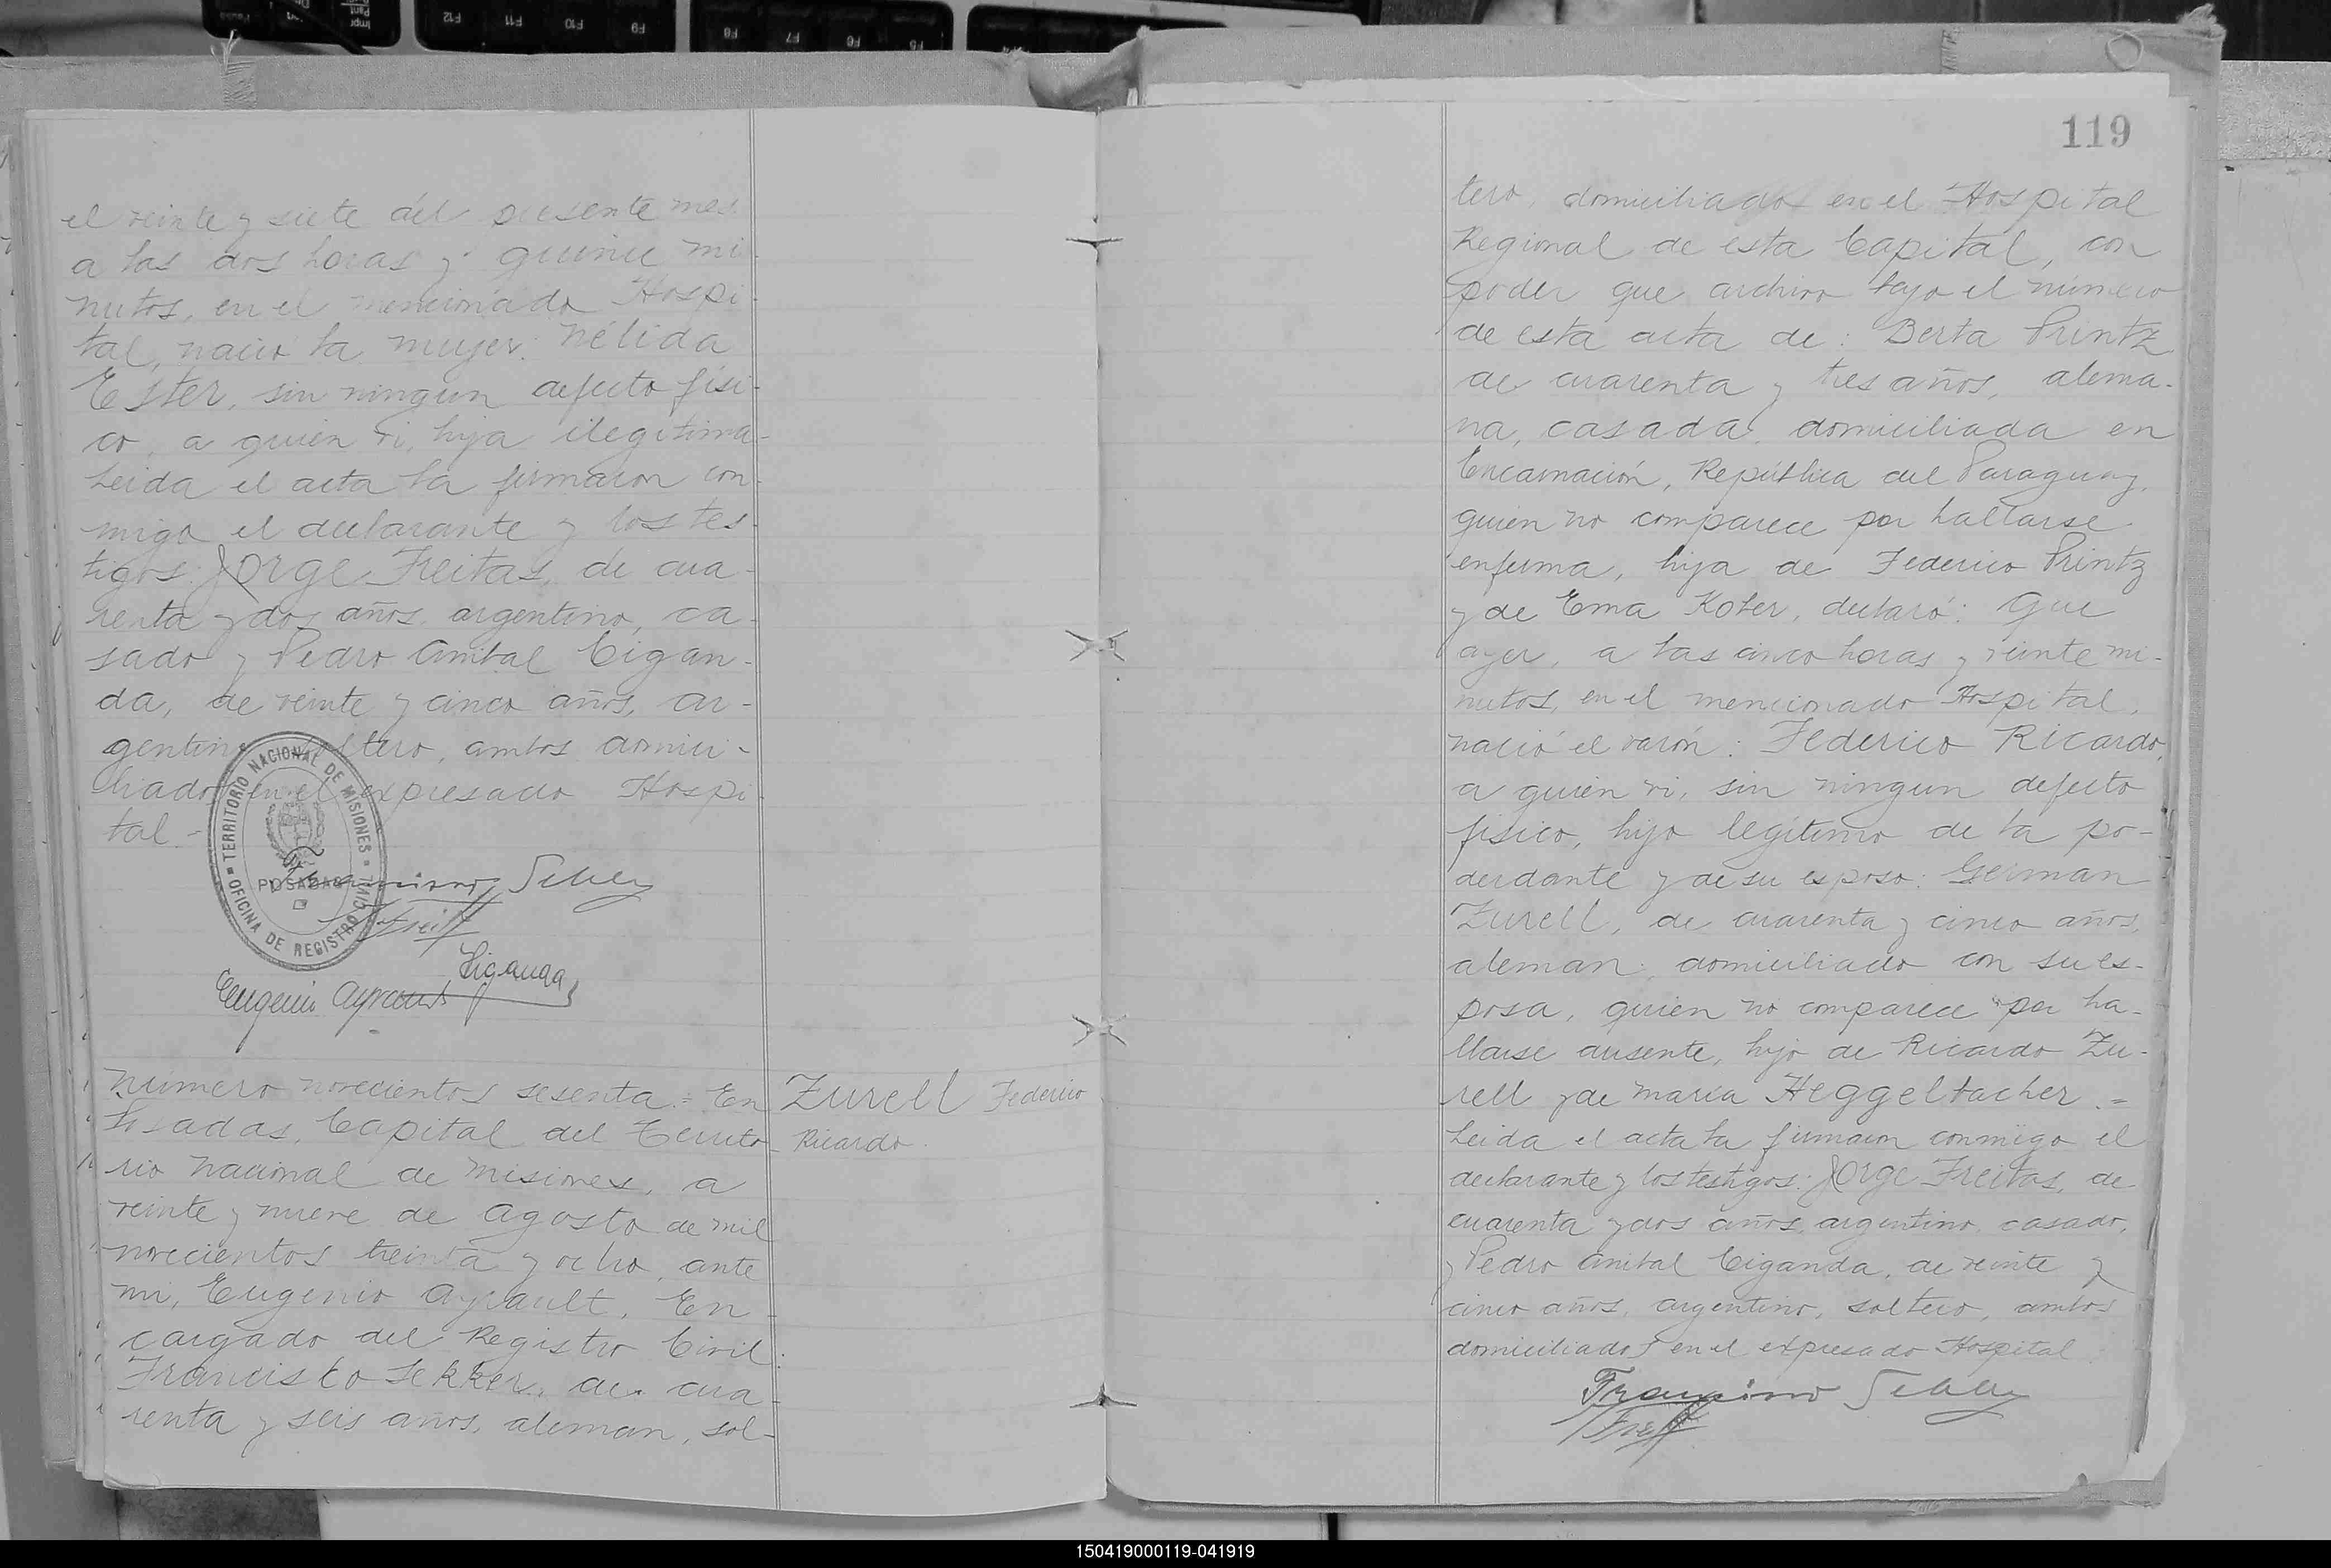 el veinte y siete del presente mes
a las dos horas y quince mi-
nutos, en el mencionado Hospi-
tal, nació la mujer: Nélida
Ester, sin ningun defecto físi-
co, a quien vi, hija ilegitima-
Leida el acta la firmaron con-
migo el declarante y los tes-
tigos: Jorge Freitas, de cua-
renta y dos años, argentino, ca-
sado y Pedro Anibal Cigan-
da, de veinte y cinco años, ar-
gentino, soltero, ambos domici-
liados en el expresado Hospi-
tal.-
TERRITORIO NACIONAL DE MISIONES
POSADAS
OFICINA DE REGISTRO CIVIL
Ciganda
Eugenio Ayrault
Número novecientos sesenta.= En
Posadas, Capital del Territo-
rio Nacional de Misiones, a
veinte y nueve de Agosto de mil
novecientos treinta y ocho, ante
mi, Eugenio Ayrault, En-
cargado del Registro Civil:
Francisco Sekker, de cua-
renta y seis años, aleman, sol-
Zurell Federico
Ricardo.
119
tero, domiciliado en el Hospital
Regional de esta Capital, con
poder que archivo bajo el número
de esta acta de: Berta Printz
de cuarenta y tres años, alema-
na, casada, domiciliada en
Encarnación, República del Paraguay,
quien no comparece por hallarse
enferma, hija de Federico Printz
y de Ema Kober, declaró: Que
ayer, a las cinco horas y veinte mi-
nutos, en el mencionado Hospital,
nació el varón: Federico Ricardo,
a quien vi, sin ningun defecto
físico, hijo legítimo de la po-
derdante y de su esposo: German
Zurell, de cuarenta y cinco años,
aleman, domiciliado con su es-
posa, quien no comparece por ha-
llarse ausente, hijo de Ricardo Zu-
rell y de María Heggelbacher.=
Leida el acta la firmaron conmigo el
declarante y los testigos: Jorge Freitas, de
cuarenta y dos años, argentino, casado,
y Pedro Anibal Ciganda, de veinte y
cinco años, argentino, soltero, ambos
domiciliados en el expresado Hospital
150419000119-041919